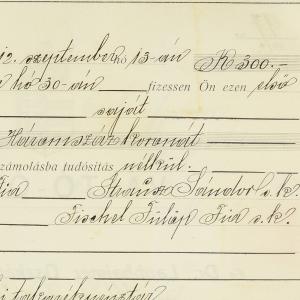 12. szeptember hó 13-án K 300.-
e hó 30-án fizessen Ön ezen első
saját
Háromszáz koronát
számolásba tudósítás nélkül.
Fia Strausz Sándor s. k.
Fischel Fülöp Fia s. k.
takarékpénztár